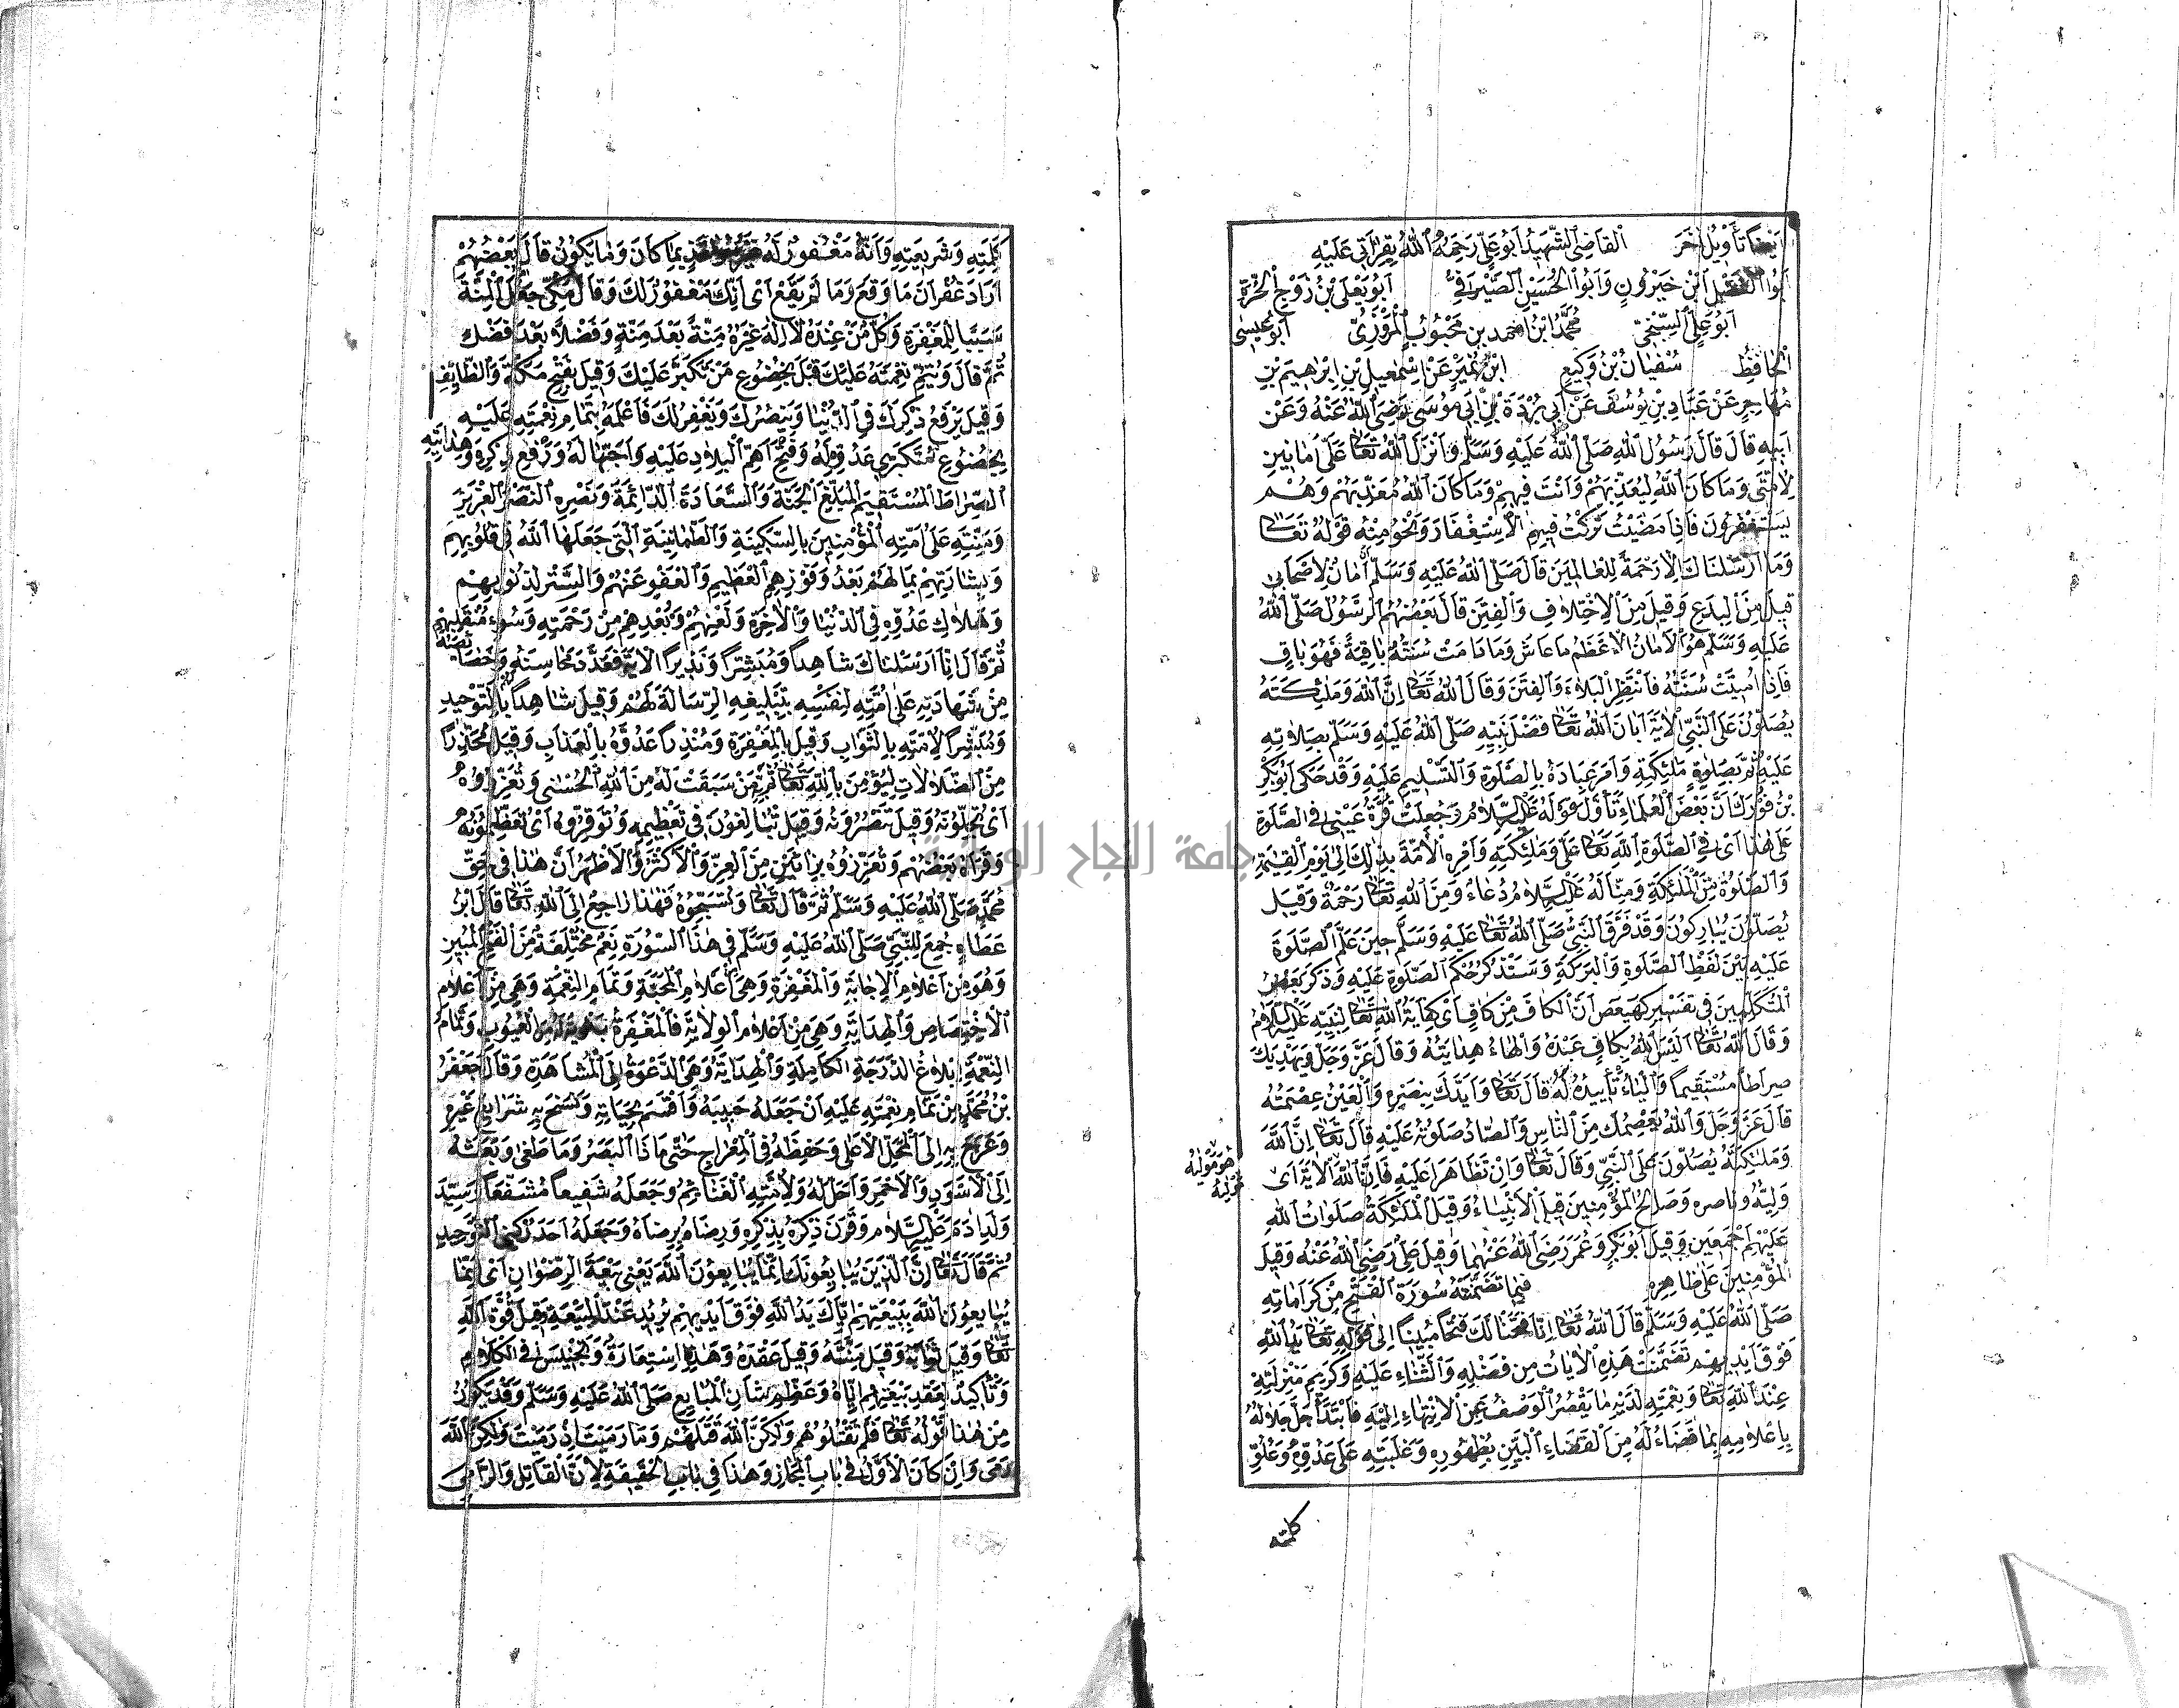 أيضا تأويل آخر القاضي الشهيد أبو علي رحمه الله بقراءتي عليه
أبو الفضل ابن خيرون وأبو الحسين الصيرفي أبو يعلى بن زوج الحرة
أبو علي السنجي محمد بن احمد بن محبوب المروزي أبو عيسى
الحافظ سفيان بن وكيع ابن نمير عن اسمعيل بن ابرهيم بن
مهاجر عن عباد بن يوسف عن أبي بردة بن أبي موسى رضي الله عنه وعن
أبيه قال قال رسول الله صلى الله عليه وسلم وأنزل الله تعالى علي امانين
لأمتي وما كان الله ليعذبهم وأنت فيهم وما كان الله معذبهم وهم
يستغفرون فاذا مضيت تركت فيهم الاستغفار ونحو منه قوله تعالى
وما أرسلناك الا رحمة للعالمين قال صلى الله عليه وسلم أنا أمان لأصحابي
قيل من البدع وقيل من الاختلاف والفتن قال بعضهم الرسول صلى الله
عليه وسلم هو الأمان الأعظم ما عاش وما دامت سنته باقية فهو باق
فاذا أميتت سنته فانتظر البلاء والفتن وقال الله تعالى ان الله وملئكته
يصلون على النبي الاية أبان الله تعالى فضل نبيه صلى الله عليه وسلم بصلاته
عليه ثم بصلوة ملئكته وأمر عباده بالصلوة والتسليم عليه وقد حكى أبو بكر
بن فورك أن بعض العلماء تأول قوله عليه السلام وجعلت قرة عيني في الصلوة
على هذا أي في الصلوة الله تعالى علي وملئكته وأمره الأمة بذلك إلى يوم القيمة
والصلوة من الملئكة ومنا له عليه السلام دعاء ومن الله تعالى رحمة وقيل
يصلون يباركون وقد فرق النبي صلى الله تعالى عليه وسلم حين علم الصلوة
عليه بين لفظ الصلوة والبركة وسنذكر حكم الصلوة عليه وذكر بعض
المتكلمين في تفسير كهيعص أن الكاف من كاف أي كفاية الله تعالى لنبيه عليه السلام
وقال الله تعالى أليس الله بكاف عبده والهاء هدايته له وقال عز وجل ويهديك
صراطا مستقيما والياء تأييده له قال تعالى وأيدك بنصره والعين عصمته
قال عز وجل والله يعصمك من الناس والصاد صلوته عليه قال تعالى ان الله
وملئكته يصلون على النبي وقال تعالى وان تظاهرا عليه فان الله الاية أي
هو موليه
وليه وناصره وصالح المؤمنين قيل الأنبياء وقيل الملئكة صلوات الله
عليهم أجمعين وقيل أبو بكر وعمر رضي الله عنهما وقيل علي رضي الله عنه وقيل
المؤمنين على ظاهره فيما تضمنته سورة الفتح من كراماته
صلى الله عليه وسلم قال الله تعالى انا فتحنا لك فتحا مبينا الى قوله تعالى يد الله
فوق أيديهم تضمنت هذه الايات من فضله والثناء عليه وكريم منزلته
عند الله تعالى ونعمته لديه ما يقصر الوصف عن الانتهاء اليه فابتدأ جل جلاله
باعلامه بما قضاه له من القضاء البين بظهوره وغلبته على عدوه وعلو
كلمته
كلمته وشريعته وأنه مغفور له بما كان وما يكون قال بعضهم
أراد غفران ما وقع وما لم يقع أي انك مغفور لك وقال مكي جعل المنة
سببا للمغفرة وكل من عنده لا اله غيره منة بعد منة وفضلا بعد فضل
ثم قال ويتم نعمته عليك قيل بخضوع من تكبر عليك وقيل بفتح مكة والطائف
وقيل يرفع ذكرك في الدنيا وينصرك ويغفر لك فأعلمه بتمام نعمته عليه
بخضوع متكبري عدوه له وفتح أهم البلاد عليه وأحبها له ورفع ذكره وهدايته
الصراط المستقيم المبلغ الجنة والسعادة الدائمة ونصره النصر العزيز
ومنته على أمته المؤمنين بالسكينة والطمانينة التي جعلها الله في قلوبهم
وبشارتهم بما لهم بعد وفوزهم العظيم والعفو عنهم والستر لذنوبهم
وهلاك عدوه في الدنيا والاخرة ولعنهم وبعدهم من رحمته وسوء منقلبهم
ثم قال انا أرسلناك شاهدا ومبشرا ونذيرا الاية فعد محاسنه وخصائصه
من شهادته على أمته لنفسه بتبليغه الرسالة لهم وقيل شاهدا لهم بالتوحيد
ومبشرا لأمته بالثواب وقيل بالمغفرة ومنذرا عدوه بالعذاب وقيل محذرا
من الضلالات ليؤمن بالله تعالى ثم به من سبقت له من الله الحسنى وتعزروه
أي تجلونه وقيل تنصرونه وقيل تبالغون في تعظيمه وتوقروه أي تعظمونه
وقرأه بعضهم وتعززوه بزائين من العز والأكثر والأظهر أن هذا في حق
محمد صلى الله عليه وسلم ثم قال تعالى وتسبحوه فهذا راجع الى الله تعالى قال ابن
عطاء جمع للنبي صلى الله عليه وسلم في هذا السورة نعم مختلفة من الفتح المبين
وهو من أعلام الاجابة والمغفرة وهي من أعلام المحبة وتمام النعمة وهي من أعلام
الاختصاص والهداية وهي من أعلام الولاية فالمغفرة تبرئة من العيوب وتمام
النعمة ابلاغ الدرجة الكاملة والهداية وهي الدعوة الى المشاهدة وقال جعفر
بن محمد من تمام نعمته عليه أن جعله حبيبه وأقسم بحياته ونسخ به شرايع غيره
وعرج به الى المحل الأعلى وحفظه في المعراج حتى ما زاغ البصر وما طغى وبعثه
الى الأسود والأحمر وأحل له ولأمته الغنائم وجعله شفيعا مشفعا وسيد
ولد ادم عليه السلام وقرن ذكره بذكره ورضاه برضاه وجعله أحد ركني التوحيد
ثم قال تعالى ان الذين يبايعونك انما يبايعون الله يعني بيعة الرضوان أي انما
يبايعون الله ببيعتهم اياك يد الله فوق أيديهم يريد عند البيعة قيل قوة الله
تعالى وقيل ثوابه وقيل منته وقيل عقده وهذه استعارة وتجنيس في الكلام
وتأكيد لعقد بيعتهم اياه وعظم شأن المبايع صلى الله عليه وسلم وقد يكون
من هذا قوله تعالى فلم تقتلوهم ولكن الله قتلهم وما رميت اذ رميت ولكن الله
رمى وان كان الأول في باب المجاز وهذا في باب الحقيقة لأن القاتل والرامي
جامعة النجاح الوطنية